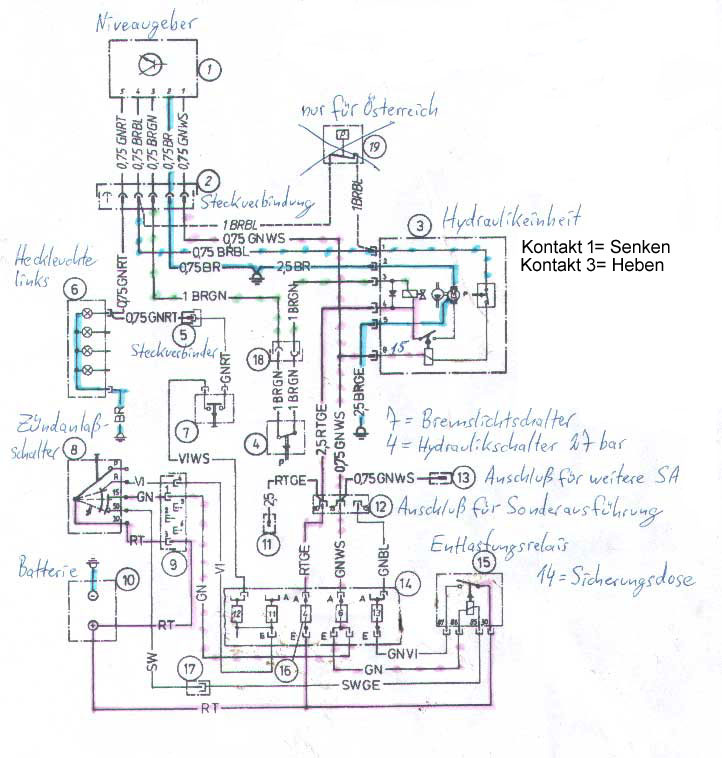 Niveaugeber
1
5 4 3 2 1
0,75 GNRT
0,75 BRBL
0,75 BRGN
0,75 BR
0,75 GNWS
nur für Österreich
P
19
2
Steckverbindung
1 BRBL
1 BRBL
3 Hydraulikeinheit
Kontakt 1= Senken
Kontakt 3= Heben
0,75 GNWS
0,75 BRBL
0,75 BR
2,5 BR
1
2
3
4
5
8
15
P
Heckleuchte
links
6
0,75 GNRT
1 BRGN
1 BRGN
0,75 GNRT
5
Steckverbinder
GNRT
18
BR
7
1 BRGN
1 BRGN
4
P
2,5 RTGE
0,75 GNWS
2,5 BRGE
7 = Bremslichtschalter
4 = Hydraulikschalter 27 bar
Zündanlaß-
schalter 8
VIWS
P
R
15
50
30
VI
GN
RT
1
2
3
9
RTGE
2,5
11
0,75 GNWS
13 Anschluß für weitere SA
12 Anschluß für Sonderausführung
Batterie
10
RT
GN
VI
RTGE
GNWS
GNBL
14
Entlastungsrelais
15
14 = Sicherungsdose
12 11
A A A
E E E
87 86 85 30
16
GNVI
GN
SW
17
SWGE
RT